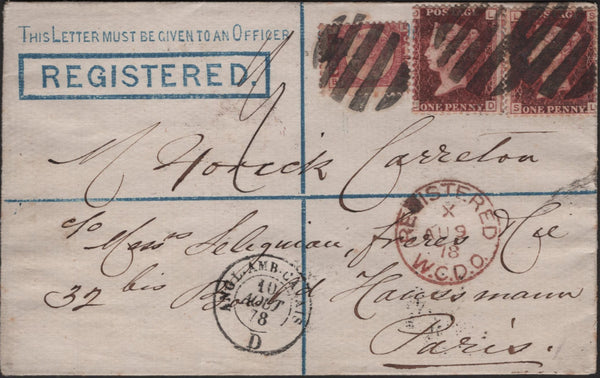 THIS LETTER MUST BE GIVEN TO AN OFFICER
REGISTERED.
POSTAGE
L
L
S
D
ONE PENNY
S
ONE PENNY
L
M. Carreton
REGISTERED
X
AU 9
78
W.C.D.O.
c/o Mess Seligman, frères & Cie
32 bis Boulд Haussmann
ANGL. AMB. CALAIS
10
AOUT
78
D
Paris.